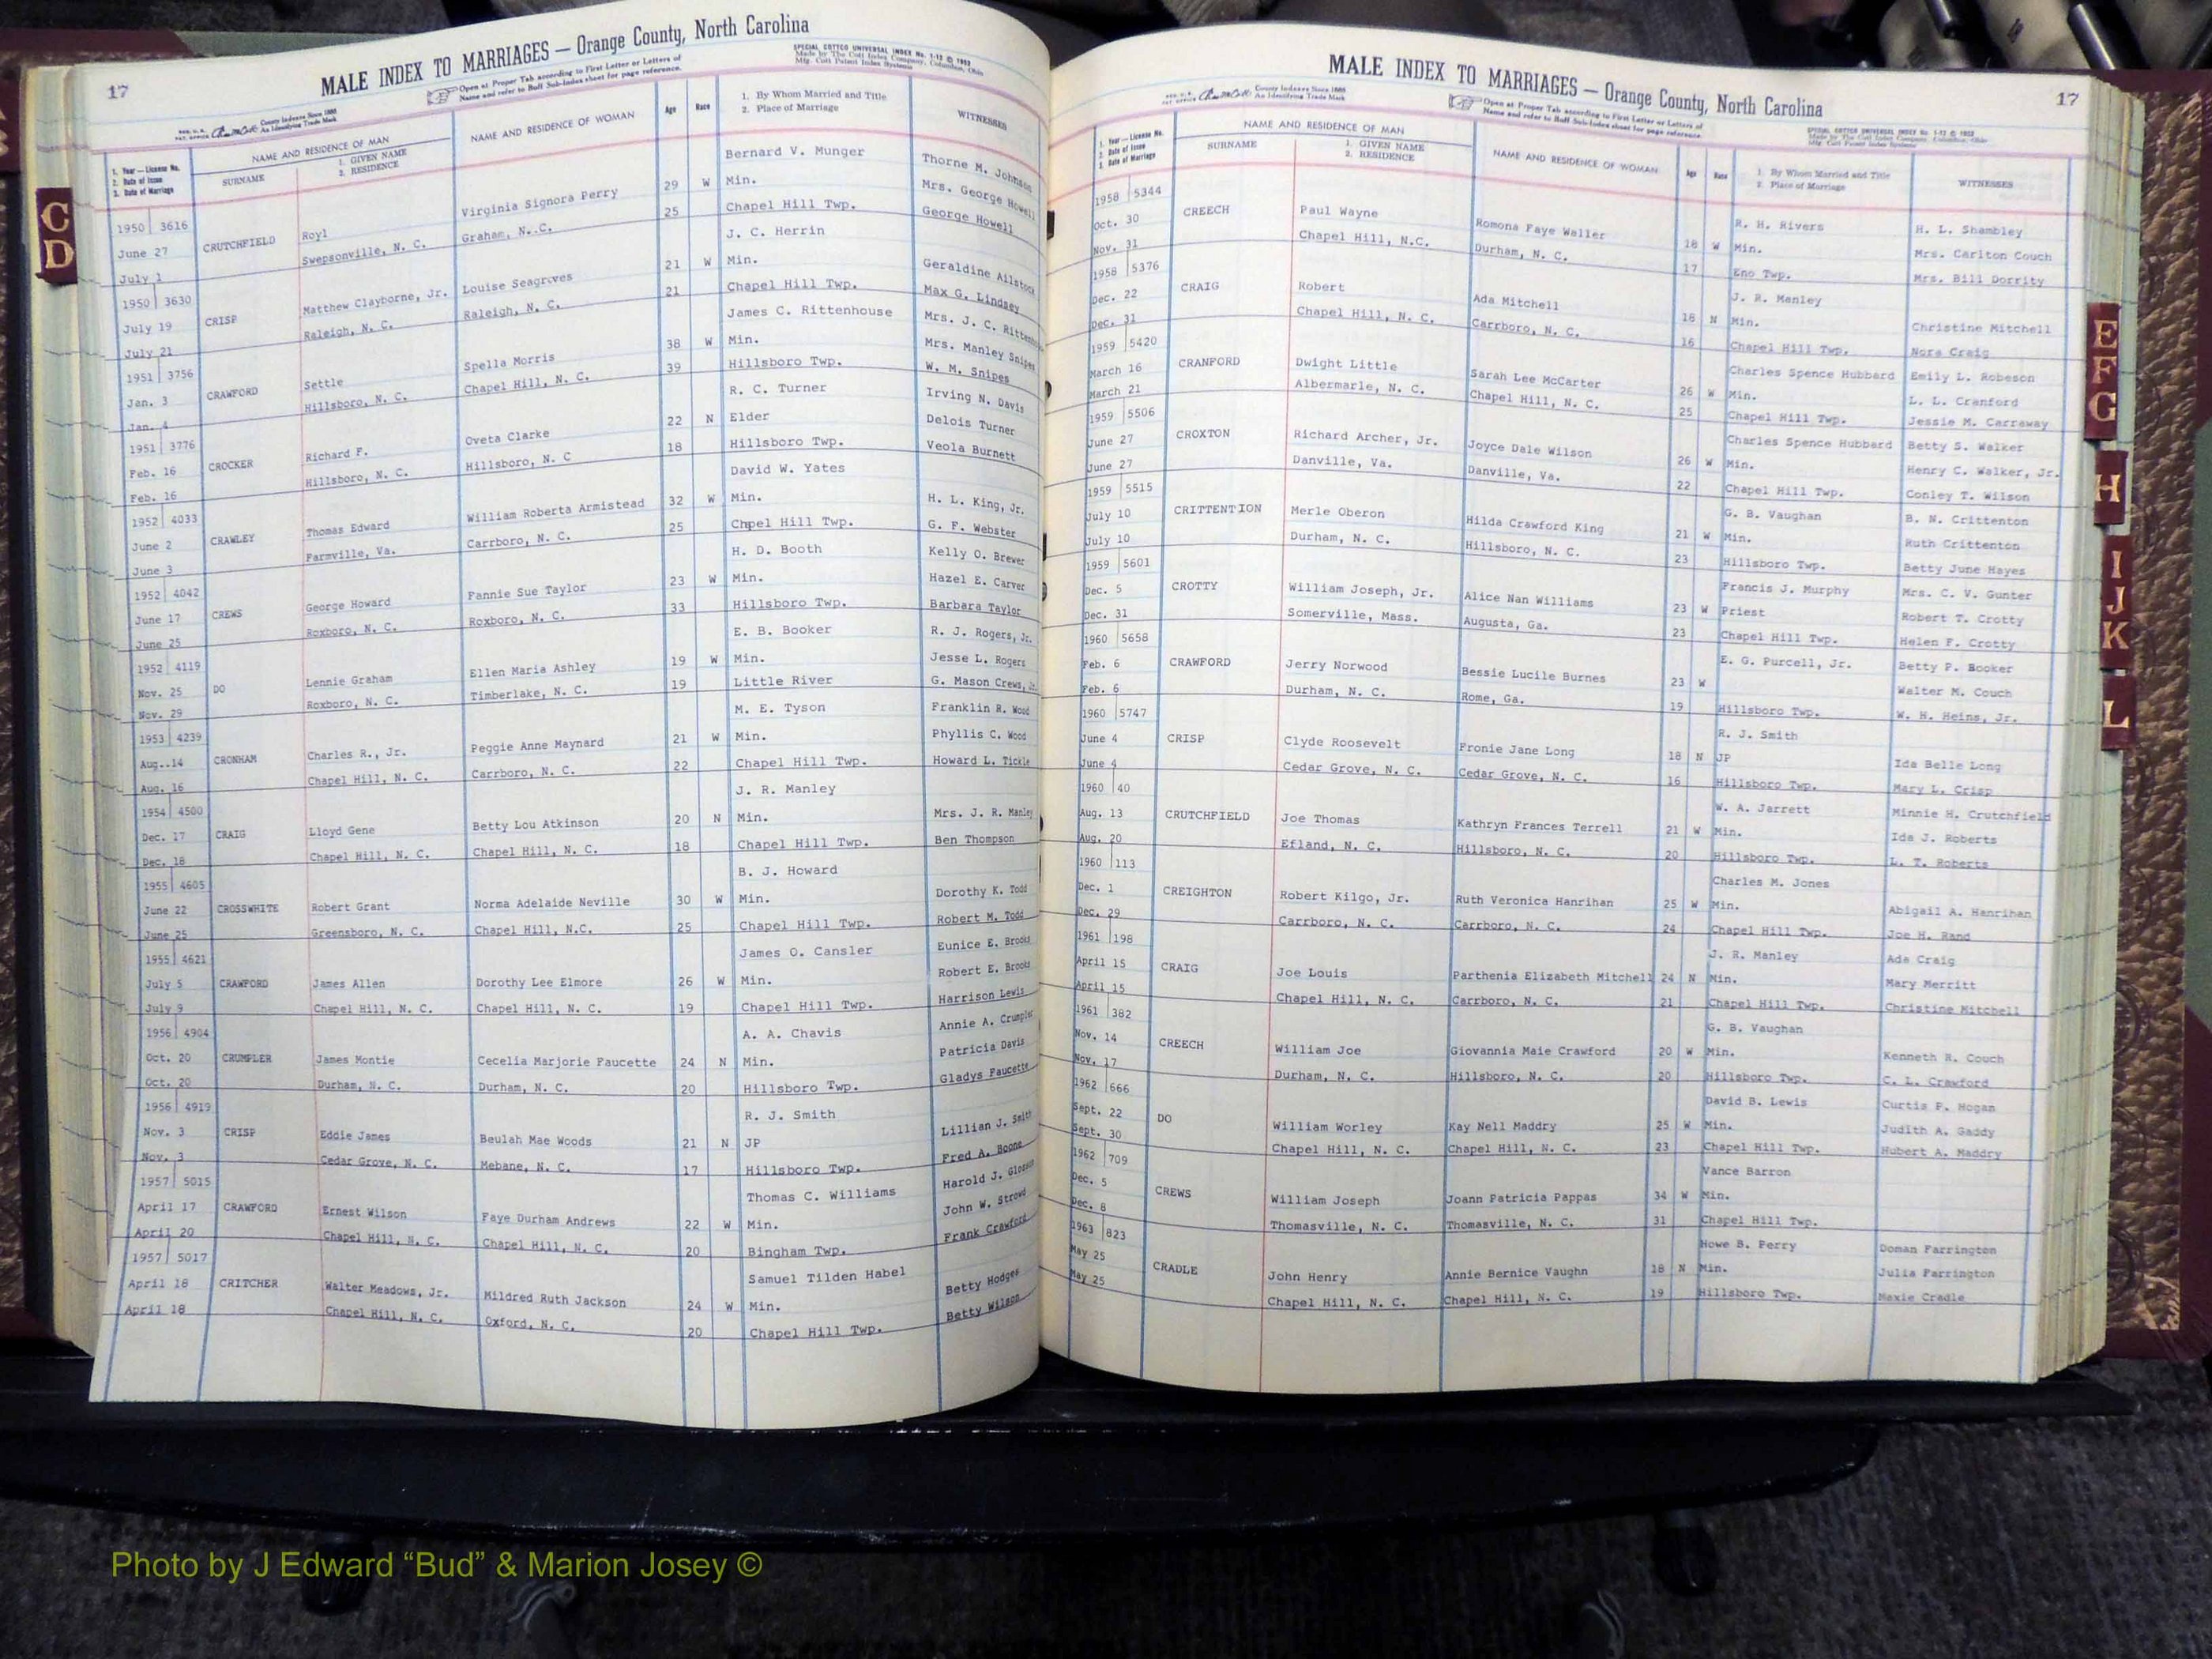 17
MALE INDEX TO MARRIAGES — Orange County, North Carolina
Open at Proper Tab according to First Letter or Letters of
Name and refer to Buff Sub-Index sheet for page reference.
SPECIAL COTTCO UNIVERSAL INDEX No. 1-12 © 1952
Made by The Cott Index Company, Columbus, Ohio
Mfg. Cott Patent Index Systems
County Indexes Since 1888
An Identifying Trade Mark
1. Year—License No.
2. Date of Issue
3. Date of Marriage
NAME AND RESIDENCE OF MAN
SURNAME
1. GIVEN NAME
2. RESIDENCE
NAME AND RESIDENCE OF WOMAN
Age
Race
1. By Whom Married and Title
2. Place of Marriage
WITNESSES
1950 3616 Bernard V. Munger Thorne M. Johnson
June 27 CRUTCHFIELD Royl Virginia Signora Perry 29 W Min. Mrs. George Howell
July 1 Swepsonville, N. C. Graham, N. C. 25 Chapel Hill Twp. George Howell
1950 3630 J. C. Herrin
July 19 CRISP Matthew Clayborne, Jr. Louise Seagroves 21 W Min. Geraldine Ailstock
July 21 Raleigh, N. C. Raleigh, N. C. 21 Chapel Hill Twp. Max G. Lindsey
1951 3756 James C. Rittenhouse Mrs. J. C.
Jan. 3 CRAWFORD Settle Spella Morris 38 W Min. Mrs. Manley Snipes
Jan. 4 Hillsboro, N. C. Chapel Hill, N. C. 39 Hillsboro Twp. W. M. Snipes
1951 3776 R. C. Turner Irving N. Davis
Feb. 16 CROCKER Richard F. Oveta Clarke 22 N Elder Delois Turner
Feb. 16 Hillsboro, N. C. Hillsboro, N. C 18 Hillsboro Twp. Veola Burnett
1952 4033 David W. Yates
June 2 CRAWLEY Thomas Edward William Roberta Armistead 32 W Min. H. L. King, Jr.
June 3 Farmville, Va. Carrboro, N. C. 25 Chpel Hill Twp. G. F. Webster
1952 4042 H. D. Booth Kelly O. Brewer
June 17 CREWS George Howard Fannie Sue Taylor 23 W Min. Hazel E. Carver
June 25 Roxboro, N. C. Roxboro, N. C. 33 Hillsboro Twp. Barbara Taylor
1952 4119 E. B. Booker R. J. Rogers, Jr.
Nov. 25 DO Lennie Graham Ellen Maria Ashley 19 W Min. Jesse L. Rogers
Nov. 29 Roxboro, N. C. Timberlake, N. C. 19 Little River G. Mason Crews, Jr.
1953 4239 M. E. Tyson Franklin R. Wood
Aug..14 CRONHAM Charles R., Jr. Peggie Anne Maynard 21 W Min. Phyllis C. Wood
Aug. 16 Chapel Hill, N. C. Carrboro, N. C. 22 Chapel Hill Twp. Howard L. Tickle
1954 4500 J. R. Manley
Dec. 17 CRAIG Lloyd Gene Betty Lou Atkinson 20 N Min. Mrs. J. R. Manley
Dec. 18 Chapel Hill, N. C. Chapel Hill, N. C. 18 Chapel Hill Twp. Ben Thompson
1955 4605 B. J. Howard
June 22 CROSSWHITE Robert Grant Norma Adelaide Neville 30 W Min. Dorothy K. Todd
June 25 Greensboro, N. C. Chapel Hill, N.C. 25 Chapel Hill Twp. Robert M. Todd
1955 4621 James O. Cansler Eunice E. Brooks
July 5 CRAWFORD James Allen Dorothy Lee Elmore 26 W Min. Robert E. Brooks
July 9 Chapel Hill, N. C. Chapel Hill, N. C. 19 Chapel Hill Twp. Harrison Lewis
1956 4904 A. A. Chavis Annie A. Crumpler
Oct. 20 CRUMPLER James Montie Cecelia Marjorie Faucette 24 N Min. Patricia Davis
Oct. 20 Durham, N. C. Durham, N. C. 20 Hillsboro Twp. Gladys Faucette
1956 4919 R. J. Smith
Nov. 3 CRISP Eddie James Beulah Mae Woods 21 N JP Lillian J. Smith
Nov. 3 Cedar Grove, N. C. Mebane, N. C. 17 Hillsboro Twp. Fred A. Boone
1957 5015 Thomas C. Williams Harold J.
April 17 CRAWFORD Ernest Wilson Faye Durham Andrews 22 W Min. John W. Strowd
April 20 Chapel Hill, N. C. Chapel Hill, N. C. 20 Bingham Twp. Frank Crawford
1957 5017 Samuel Tilden Habel
April 18 CRITCHER Walter Meadows, Jr. Mildred Ruth Jackson 24 W Min. Betty Hodges
April 18 Chapel Hill, N. C. Oxford, N. C. 20 Chapel Hill Twp. Betty Wilson
MALE INDEX TO MARRIAGES — Orange County, North Carolina
17
County Indexes Since 1888
An Identifying Trade Mark
Open at Proper Tab according to First Letter or Letters of
Name and refer to Buff Sub-Index sheet for page reference.
SPECIAL COTTCO UNIVERSAL INDEX No. 1-12 © 1952
Made by The Cott Index Company, Columbus, Ohio
Mfg. Cott Patent Index Systems
1. Year—License No.
2. Date of Issue
3. Date of Marriage
NAME AND RESIDENCE OF MAN
SURNAME
1. GIVEN NAME
2. RESIDENCE
NAME AND RESIDENCE OF WOMAN
Age
Race
1. By Whom Married and Title
2. Place of Marriage
WITNESSES
1958 5344 R. H. Rivers H. L. Shambley
Oct. 30 CREECH Paul Wayne Romona Faye Waller 18 W Min. Mrs. Carlton Couch
Nov. 31 Chapel Hill, N.C. Durham, N. C. 17 Eno Twp. Mrs. Bill Dorrity
1958 5376 J. R. Manley
Dec. 22 CRAIG Robert Ada Mitchell 18 N Min. Christine Mitchell
Dec. 31 Chapel Hill, N. C. Carrboro, N. C. 16 Chapel Hill Twp. Nora Craig
1959 5420 Charles Spence Hubbard Emily L. Robeson
March 16 CRANFORD Dwight Little Sarah Lee McCarter 26 W Min. L. L. Cranford
March 21 Albermarle, N. C. Chapel Hill, N. C. 25 Chapel Hill Twp. Jessie M. Carraway
1959 5506 Charles Spence Hubbard Betty S. Walker
June 27 CROXTON Richard Archer, Jr. Joyce Dale Wilson 26 W Min. Henry C. Walker, Jr.
June 27 Danville, Va. Danville, Va. 22 Chapel Hill Twp. Conley T. Wilson
1959 5515 G. B. Vaughan B. N. Crittenton
July 10 CRITTENTION Merle Oberon Hilda Crawford King 21 W Min. Ruth Crittenton
July 10 Durham, N. C. Hillsboro, N. C. 23 Hillsboro Twp. Betty June Hayes
1959 5601 Francis J. Murphy Mrs. C. V. Gunter
Dec. 5 CROTTY William Joseph, Jr. Alice Nan Williams 23 W Priest Robert T. Crotty
Dec. 31 Somerville, Mass. Augusta, Ga. 23 Chapel Hill Twp. Helen F. Crotty
1960 5658 E. G. Purcell, Jr. Betty P. Booker
Feb. 6 CRAWFORD Jerry Norwood Bessie Lucile Burnes 23 W Walter M. Couch
Feb. 6 Durham, N. C. Rome, Ga. 19 Hillsboro Twp. W. H. Heins, Jr.
1960 5747 R. J. Smith
June 4 CRISP Clyde Roosevelt Fronie Jane Long 18 N JP Ida Belle Long
June 4 Cedar Grove, N. C. Cedar Grove, N. C. 16 Hillsboro Twp. Mary L. Crisp
1960 40 W. A. Jarrett Minnie H. Crutchfield
Aug. 13 CRUTCHFIELD Joe Thomas Kathryn Frances Terrell 21 W Min. Ida J. Roberts
Aug. 20 Efland, N. C. Hillsboro, N. C. 20 Hillsboro Twp. L. T. Roberts
1960 113 Charles M. Jones
Dec. 1 CREIGHTON Robert Kilgo, Jr. Ruth Veronica Hanrihan 25 W Min. Abigail A. Hanrihan
Dec. 29 Carrboro, N. C. Carrboro, N. C. 24 Chapel Hill Twp. Joe H. Rand
1961 198 J. R. Manley Ada Craig
April 15 CRAIG Joe Louis Parthenia Elizabeth Mitchell 24 N Min. Mary Merritt
April 15 Chapel Hill, N. C. Carrboro, N. C. 21 Chapel Hill Twp. Christine Mitchell
1961 382 G. B. Vaughan
Nov. 14 CREECH William Joe Giovannia Maie Crawford 20 W Min. Kenneth R. Couch
Nov. 17 Durham, N. C. Hillsboro, N. C. 20 Hillsboro Twp. C. L. Crawford
1962 666 David B. Lewis Curtis P. Hogan
Sept. 22 DO William Worley Kay Nell Maddry 25 W Min. Judith A. Gaddy
Sept. 30 Chapel Hill, N. C. Chapel Hill, N. C. 23 Chapel Hill Twp. Hubert A. Maddry
1962 709 Vance Barron
Dec. 5 CREWS William Joseph Joann Patricia Pappas 34 W Min.
Dec. 8 Thomasville, N. C. Thomasville, N. C. 31 Chapel Hill Twp.
1963 823 Howe B. Perry Doman Farrington
May 25 CRADLE John Henry Annie Bernice Vaughn 18 N Min. Julia Farrington
May 25 Chapel Hill, N. C. Chapel Hill, N. C. 19 Hillsboro Twp. Maxie Cradle
C
D
E
F
G
H
I
J
K
L
Photo by J Edward “Bud” & Marion Josey ©